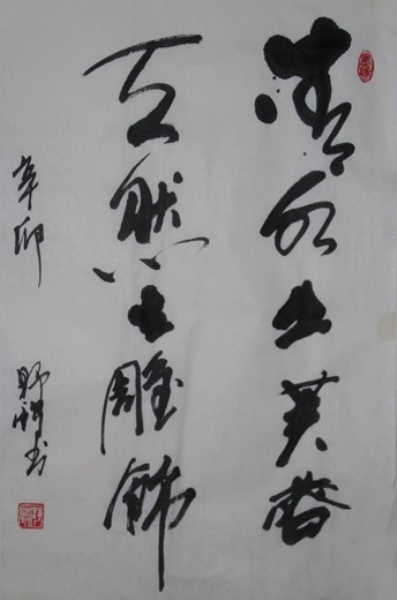 清水出芙蓉
天然去雕飾
辛卯
书